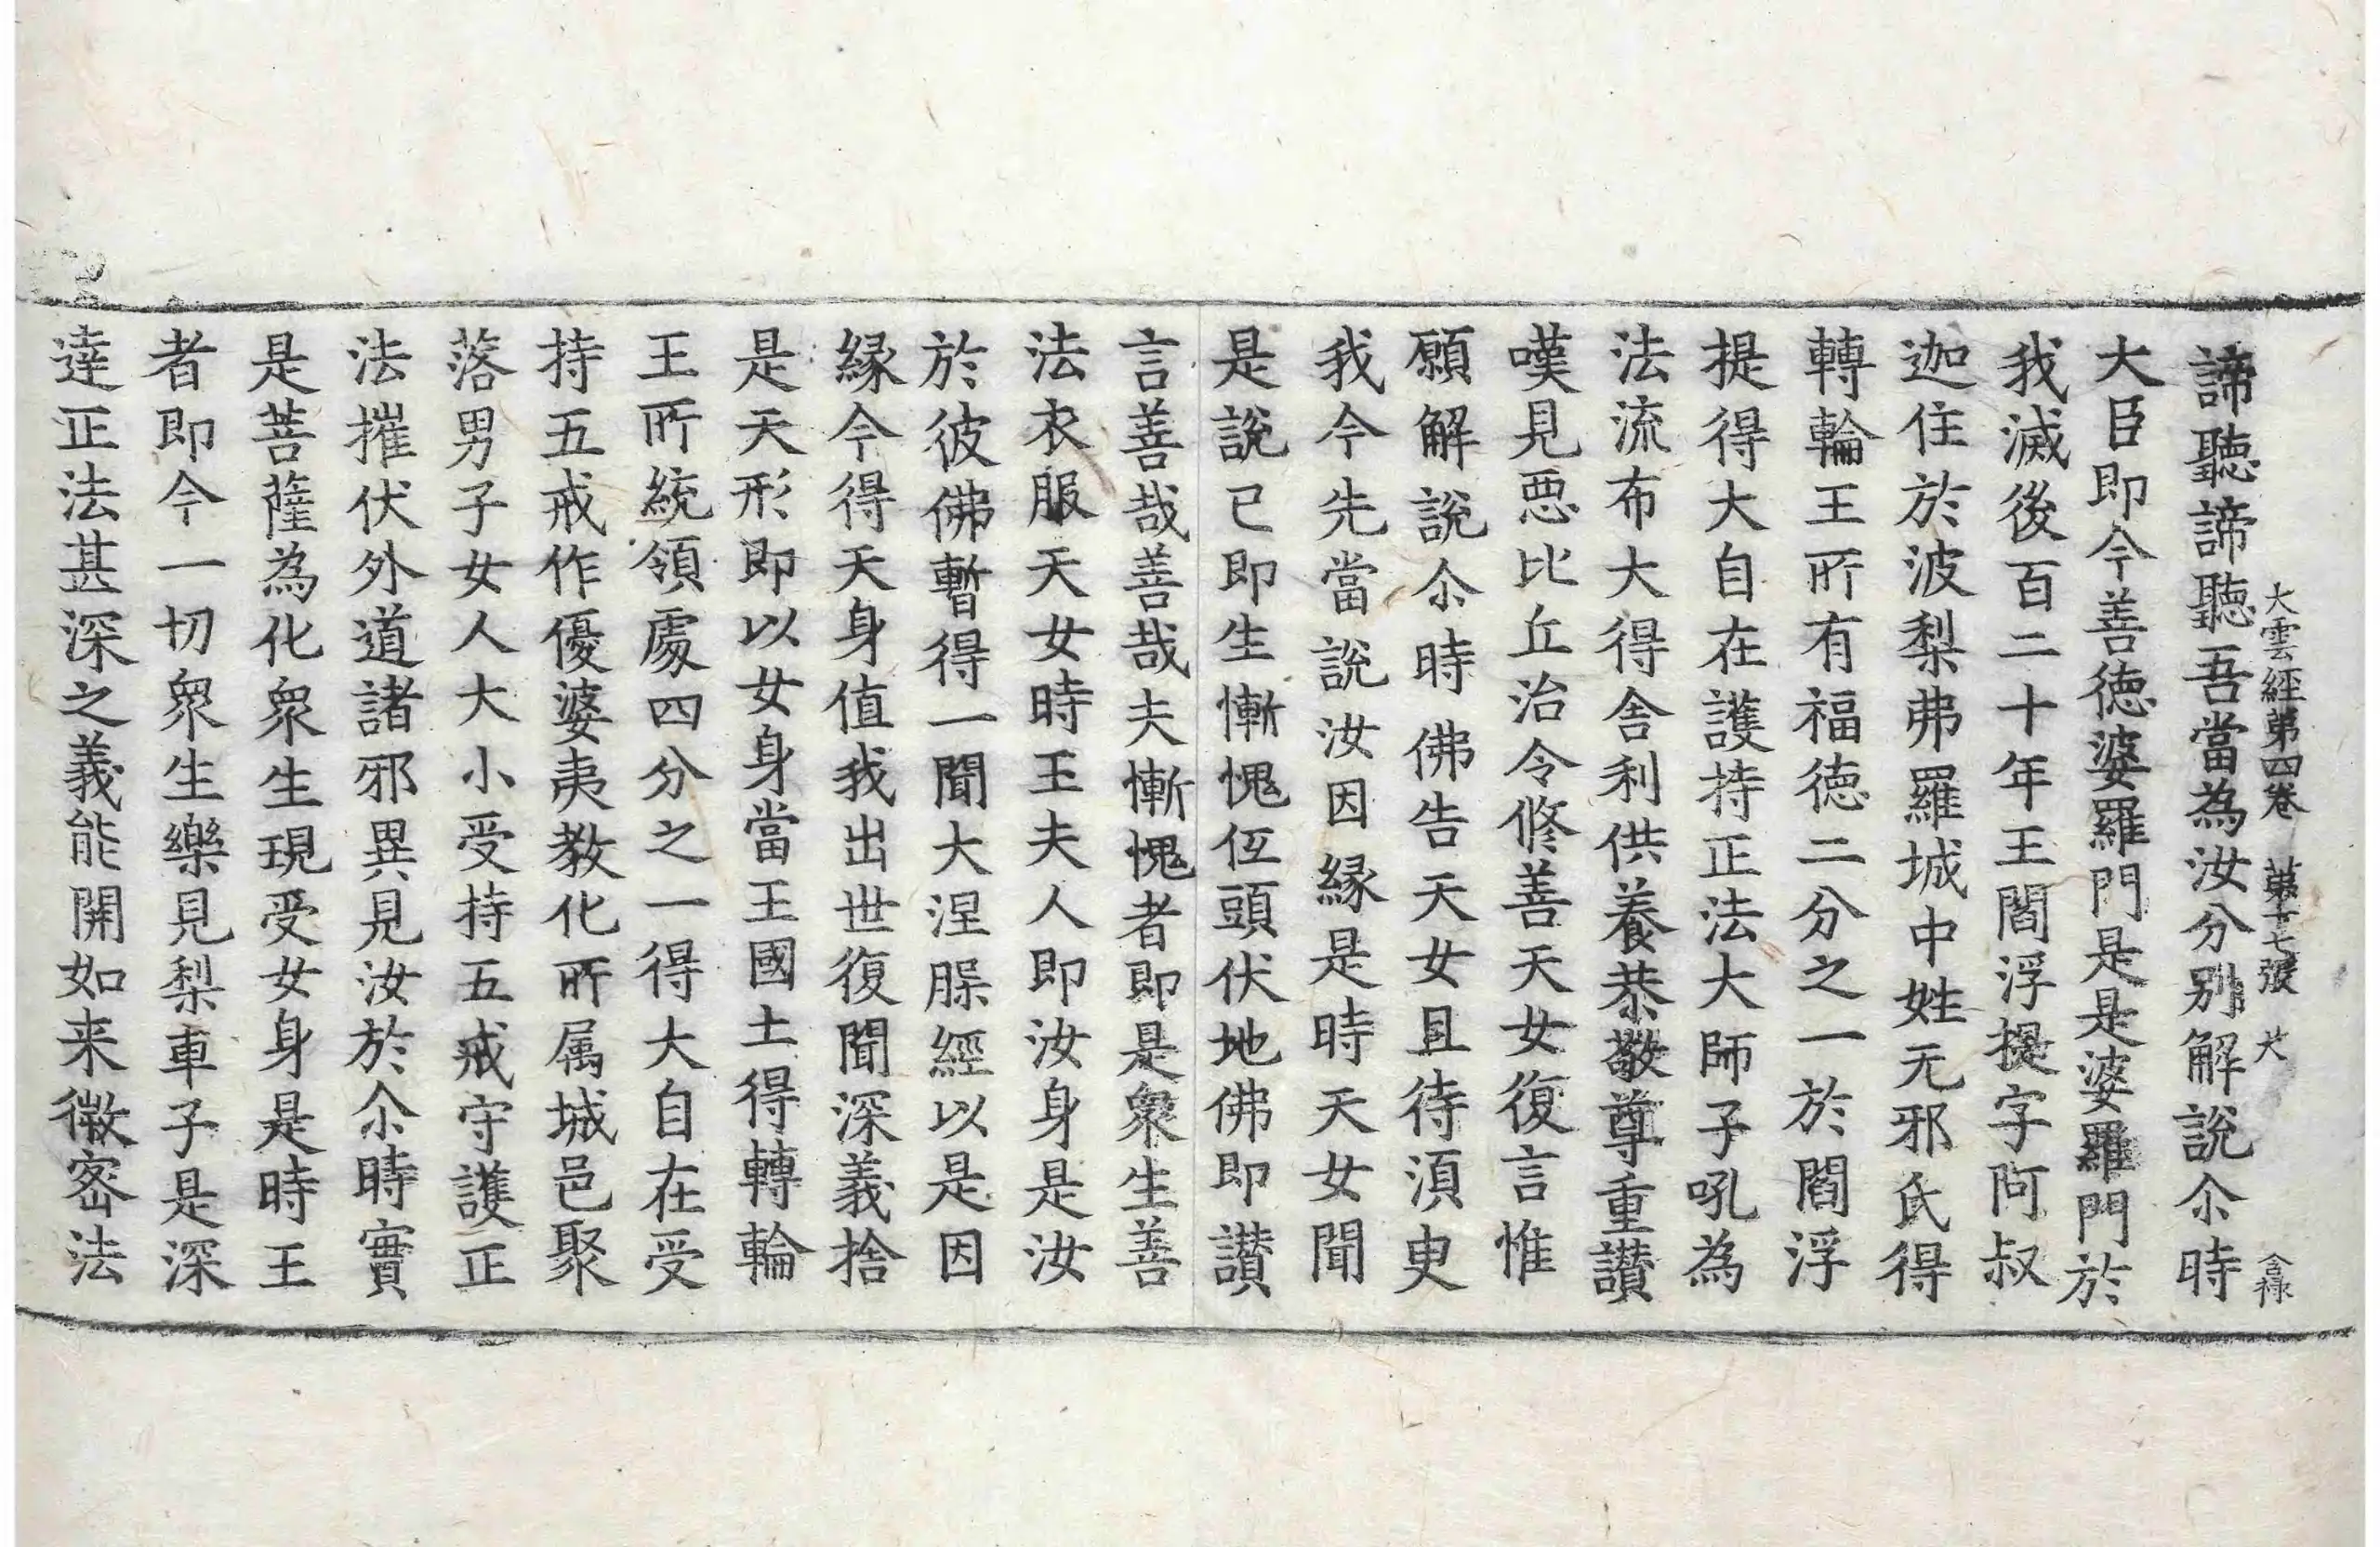 大雲經第四卷 第十七張 大 含祿
諦聽諦聽吾當為汝分别解說尒時
大臣即今善徳婆羅門是是婆羅門於
我滅後百二十年王閻浮提字阿叔
迦住於波梨弗羅城中姓无邪氏得
轉輪王所有福徳二分之一於閻浮
提得大自在護持正法大師子吼為
法流布大得舍利供養恭敬尊重讃
嘆見悪比丘治令脩善天女復言惟
願解說尒時佛告天女且待湏臾
我今先當說汝因縁是時天女聞
是說已即生慚愧伍頭伏地佛即讃
言善哉善哉夫慚愧者即是衆生善
法衣服天女時王夫人即汝身是汝
於彼佛暫得一聞大涅槃經以是因
縁今得天身值我出世復聞深義捨
是天形即以女身當王國土得轉輪
王所統領處四分之一得大自在受
持五戒作優婆夷教化所属城邑聚
落男子女人大小受持五戒守護正
法摧伏外道諸邪異見汝於尒時實
是菩薩為化衆生現受女身是時王
者即今一切衆生樂見梨車子是深
達正法甚深之義能開如来微宻法